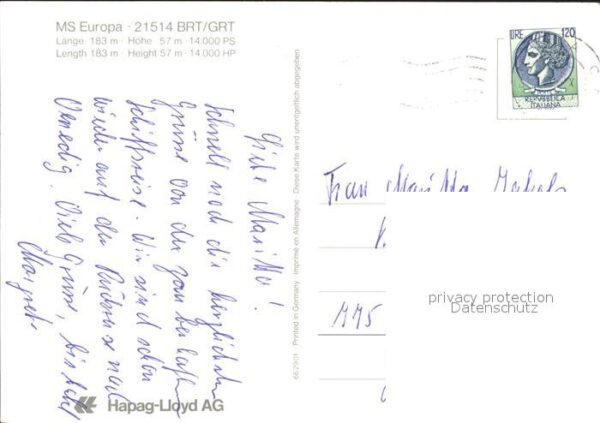 MS Europa · 21514 BRT/GRT
Länge 183 m · Höhe 57 m · 14.000 PS
Length 183 m · Height 57 m · 14.000 HP
Liebe Maritta!
Schnell noch die herzlichsten
Grüße von der zauberhaften
Schiffsreise. Wir sind schon
wieder auf der Rückreise nach
Venedig. Viele Grüße, bis bald
Margret
Hapag-Lloyd AG
6629/01 Printed in Germany · Imprimé en Allemagne · Diese Karte wird unentgeltlich abgegeben
LIRE 120
REPVBBLICA
ITALIANA
Frau Maritta
775
privacy protection
Datenschutz